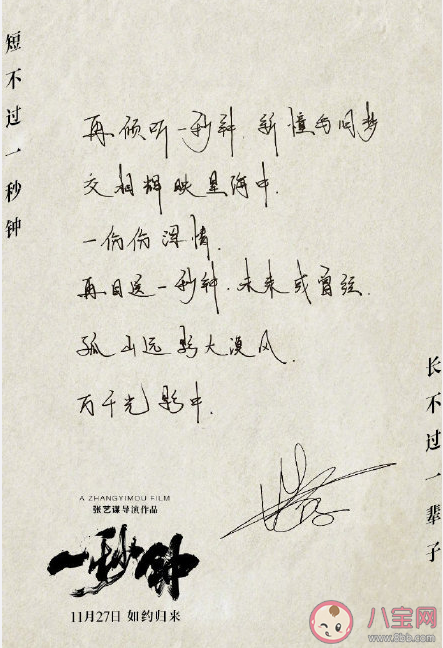 短不过一秒钟
再倾听一秒钟.新憧与旧梦
交相辉映星海中.
一份份深情.
再目送一秒钟.未来或曾经.
孤山远影大漠风.
万千光影中.
长不过一辈子
A ZHANGYIMOU FILM
张艺谋导演作品
一秒钟
11月27日 如约归来
八宝网
www.8bb.com